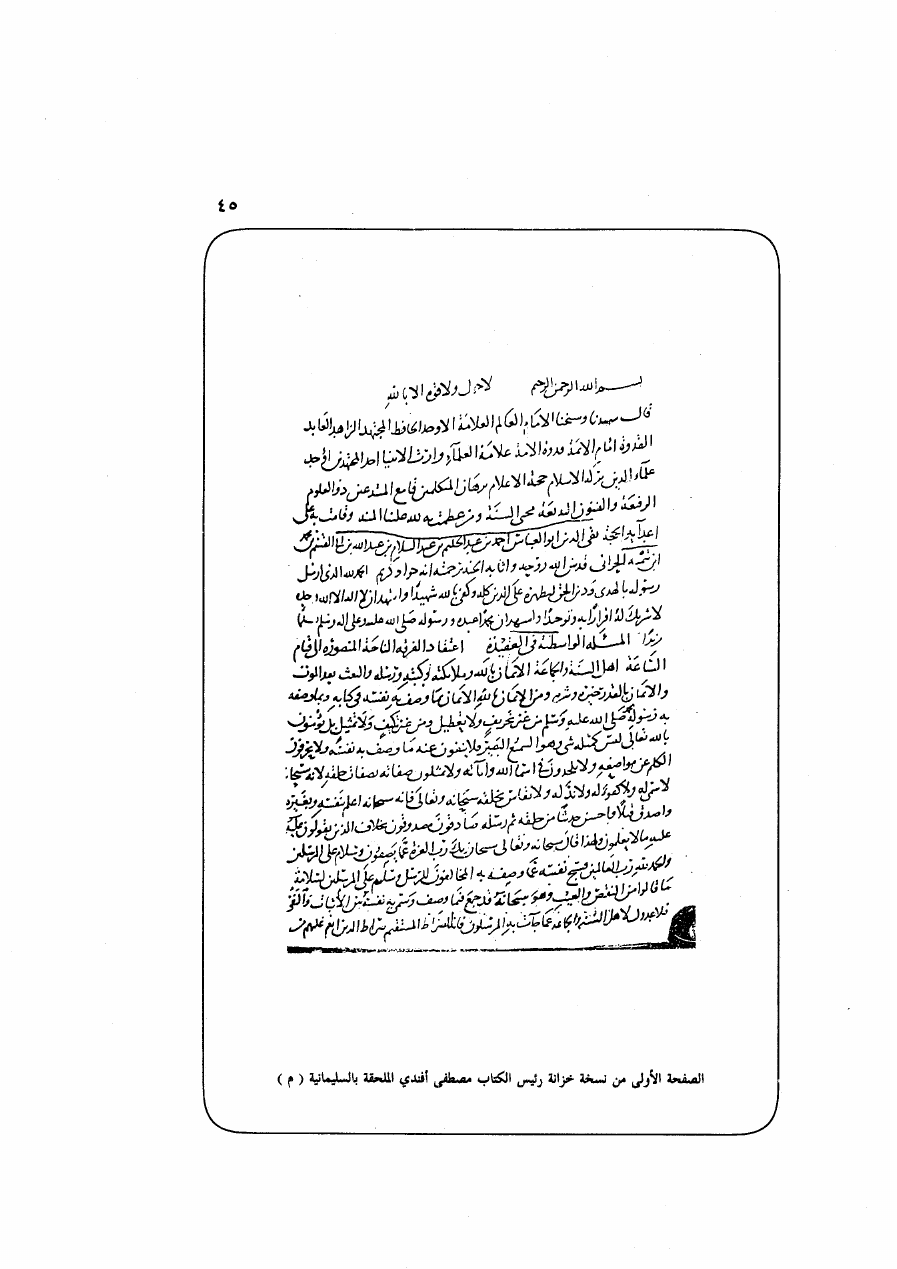 ٤٥
بسم الله الرحمن الرحيم لا حول ولا قوة الا بالله
قال سيدنا وشيخنا الامام العالم العلامة الاوحد الحافظ المجتهد الزاهد العابد
القدوة امام الائمة قدوة الامة علامة العلماء وارث الانبيا اخر المجتهدين اوحد
علماء الدين بركة الاسلام حجة الاعلام برهان المتكلمين قامع المبتدعين ذو العلوم
الرفيعة والفنون البديعة محيي السنة ومن عظمت به لله علينا المنة وقامت به على
اعدائه الحجة تقي الدين ابو العباس احمد بن عبد الحليم بن عبد السلام بن عبد الله بن ابي القسم بن محمد
ابن تيمية الحراني قدس الله روحه واثابه الجنة برحمته انه جواد كريم الحمد لله الذي ارسل
رسوله بالهدى ودين الحق ليظهره على الدين كله وكفى بالله شهيدا واشهد ان لا اله الا الله وحده
لا شريك له اقرارا به وتوحيدا واشهد ان محمدا عبده ورسوله صلى الله عليه وعلى اله وسلم تسليما
مزيدا المسئلة الواسطية في العقيدة اعتقاد الفرقة الناجية المنصورة الى قيام
الساعة اهل السنة والجماعة الايمان بالله وملائكته وكتبه ورسله والبعث بعد الموت
والايمان بالقدر خيره وشره ومن الايمان بالله الايمان بما وصف به نفسه في كتابه وبما وصفه
به رسوله صلى الله عليه وسلم من غير تحريف ولا تعطيل ومن غير تكييف ولا تمثيل بل يؤمنون
بالله تعالى ليس كمثله شي وهو السميع البصير فلا ينفون عنه ما وصف به نفسه ولا يحرفون
الكلم عن مواضعه ولا يلحدون في اسما الله واياته ولا يمثلون صفاته بصفات خلقه لانه سبحانه
لا سمي له ولا كفوء له ولا ند له ولا يقاس بخلقه سبحانه وتعالى فانه سبحانه اعلم بنفسه وبغيره
واصدق قيلا واحسن حديثا من خلقه ثم رسله صادقون مصدوقون بخلاف الذين يقولون
عليه ما لا يعلمون ولهذا قال سبحانه وتعالى سبحان ربك رب العزة عما يصفون وسلام على المرسلين
والحمد لله رب العالمين فسبح نفسه عما وصفه به المخالفون للرسل وسلم على المرسلين لسلامة
ما قالوا من النقص والعيب وهو سبحانه قد جمع فيما وصف وسمى به نفسه بين الاثبات والنفي
فلا عدول لاهل السنة والجماعة عما جاءت به المرسلون فانه الصراط المستقيم صراط الذين انعم عليهم من
الصفحة الأولى من نسخة خزانة رئيس الكتاب مصطفى أفندي الملحقة بالسليمانية ( م )